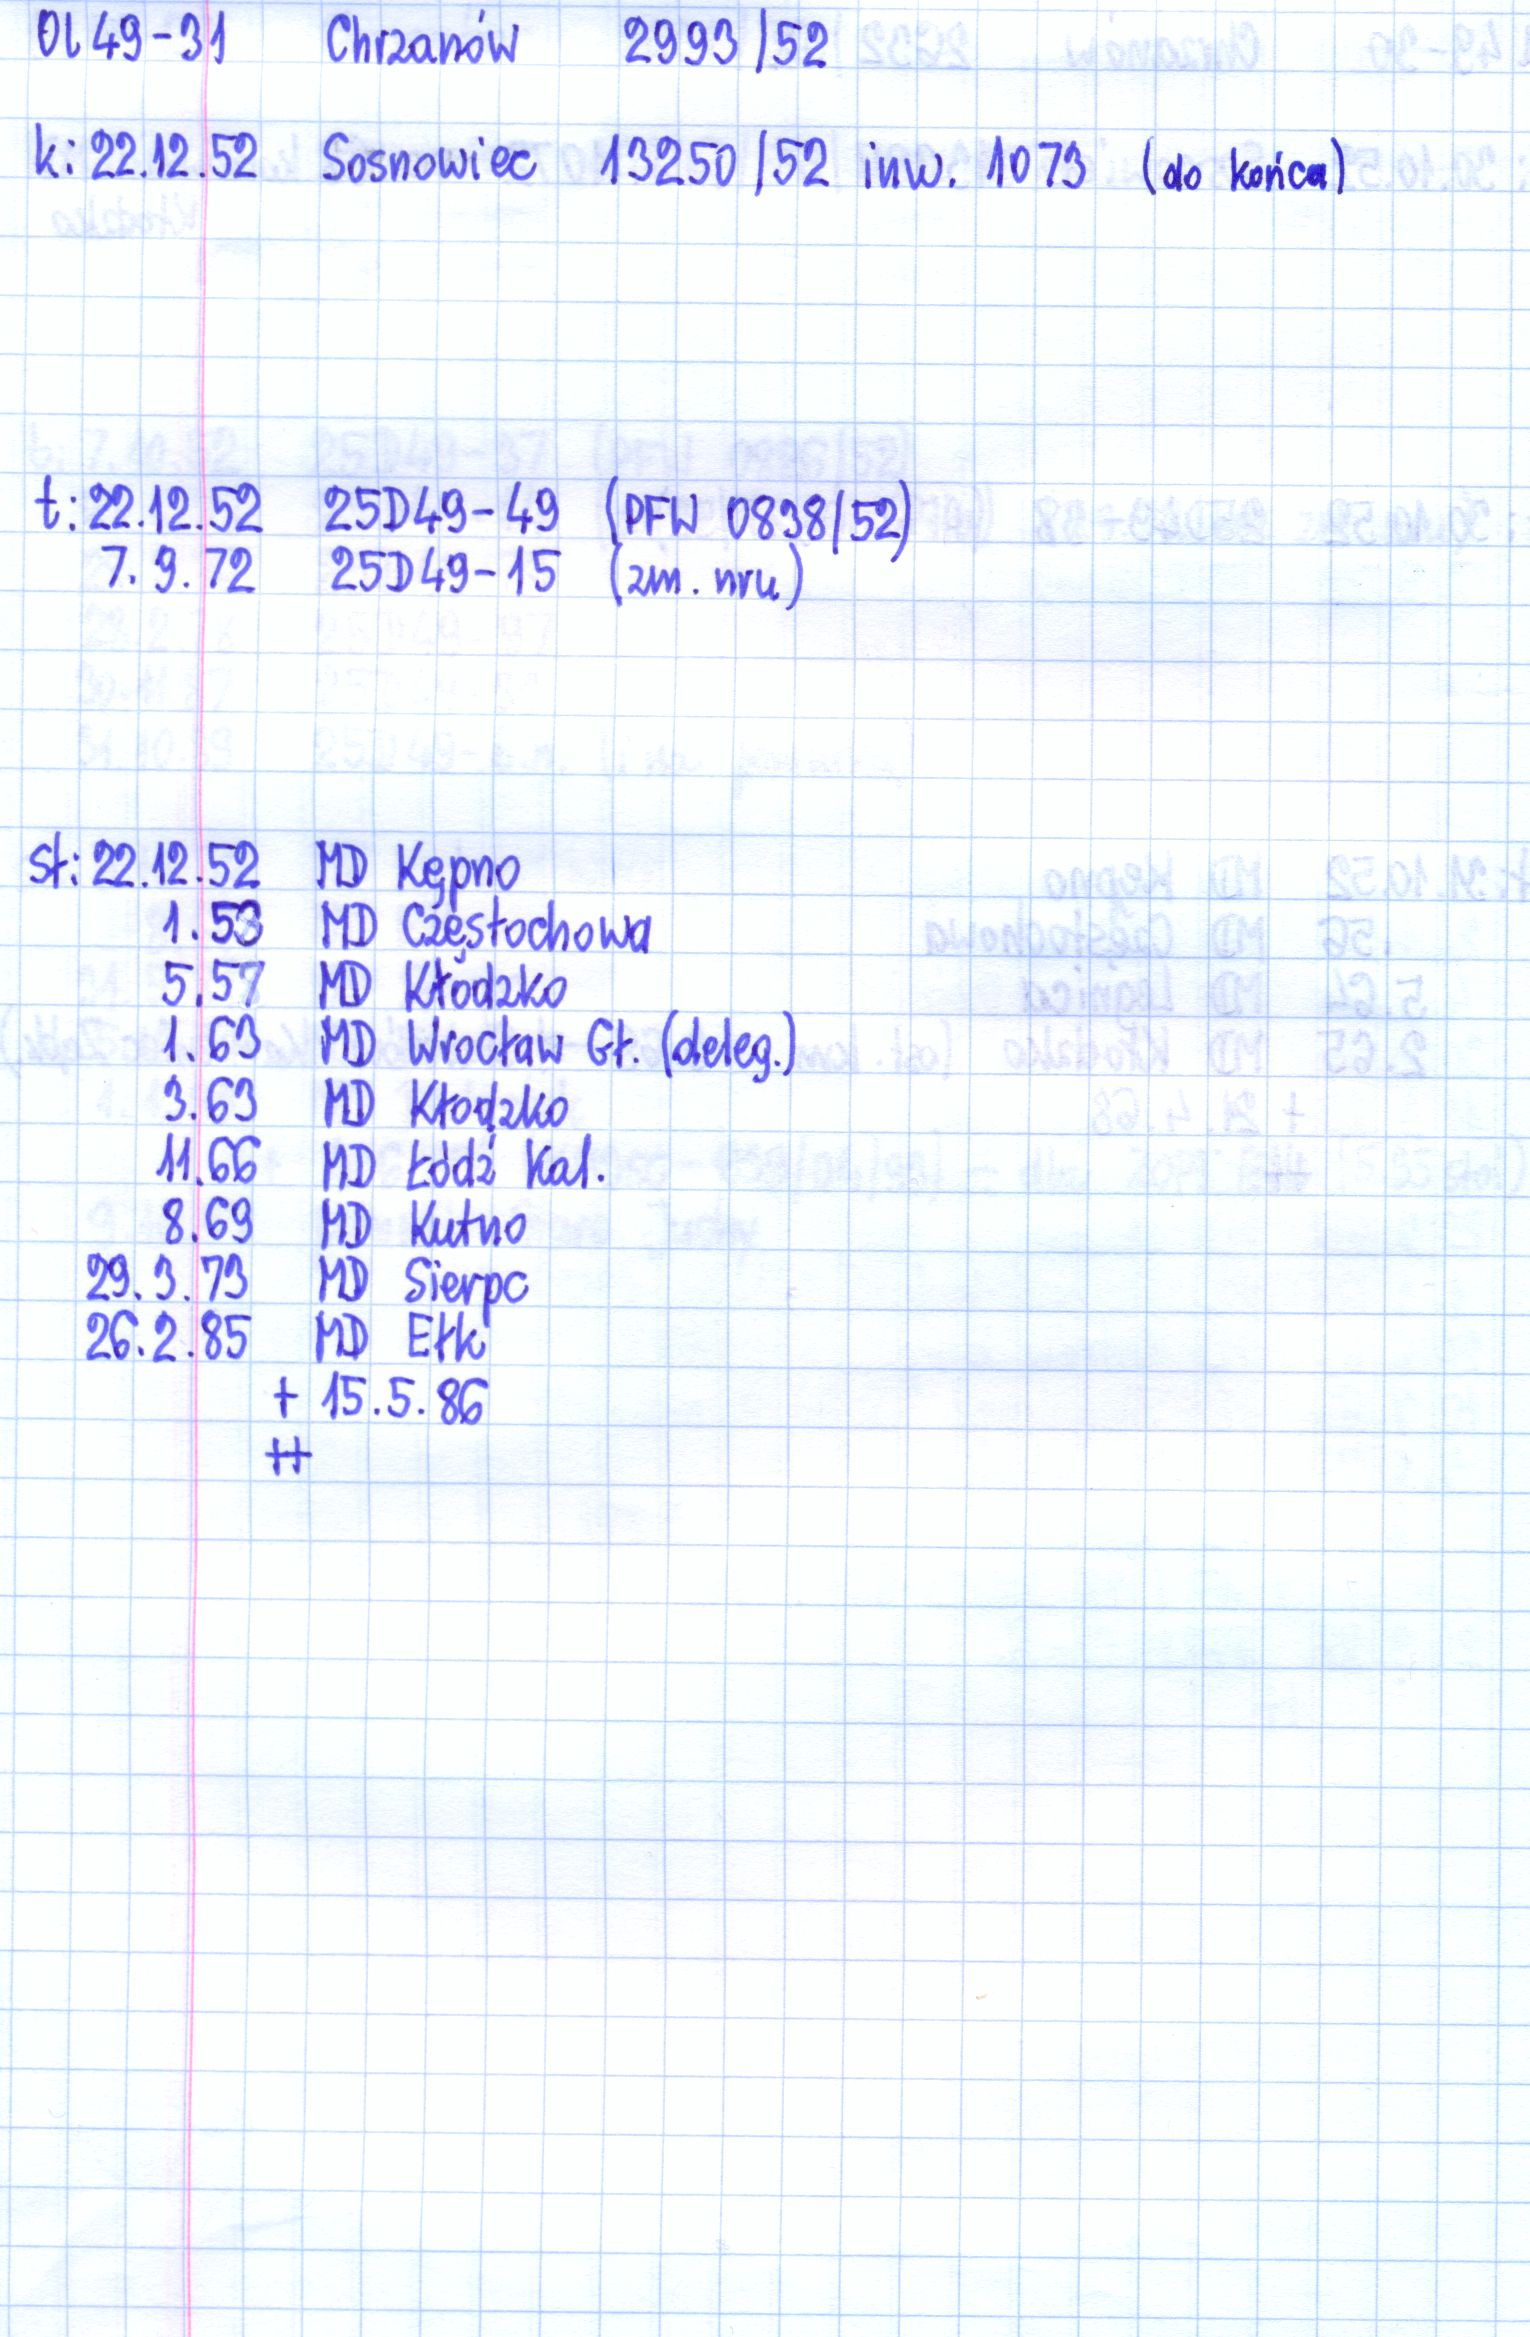 Ol49-31 Chrzanów 2993/52
k: 22.12.52 Sosnowiec 13250/52 inw. 1073 (do końca)
t: 22.12.52 25D49-49 (PFW 0838/52)
7.9.72 25D49-15 (zm. nru)
st: 22.12.52 MD Kępno
1.53 MD Częstochowa
5.57 MD Kłodzko
1.63 MD Wrocław Gł. (deleg.)
3.63 MD Kłodzko
11.66 MD Łódź Kal.
8.69 MD Kutno
29.3.73 MD Sierpc
26.2.85 MD Ełk
+ 15.5.86
++